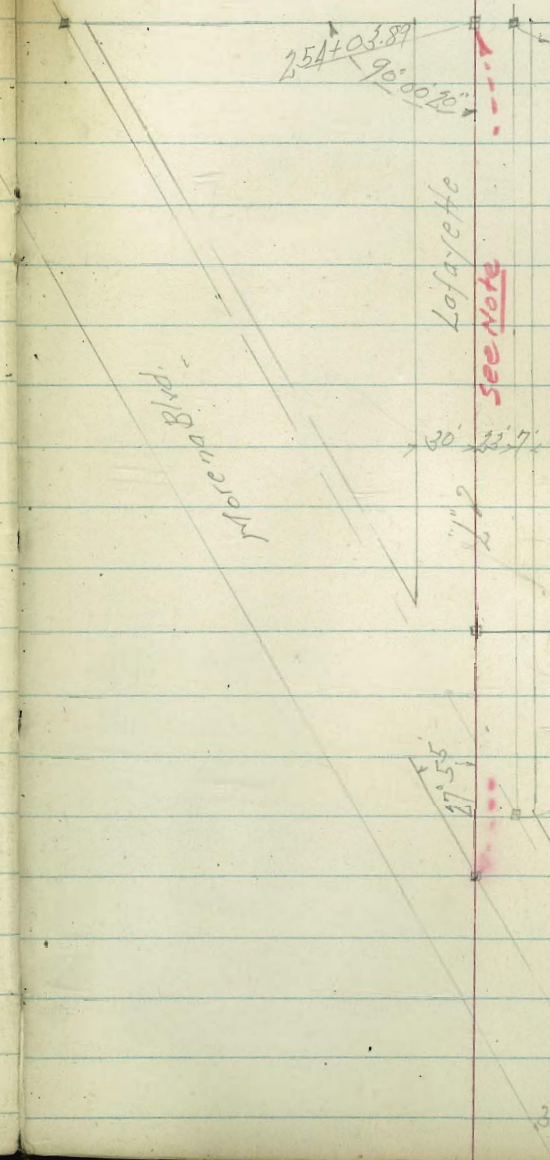 254+03.89
90°00'20"
Lafayette
See Note
Morena Blvd.
30'
7'
27°55'